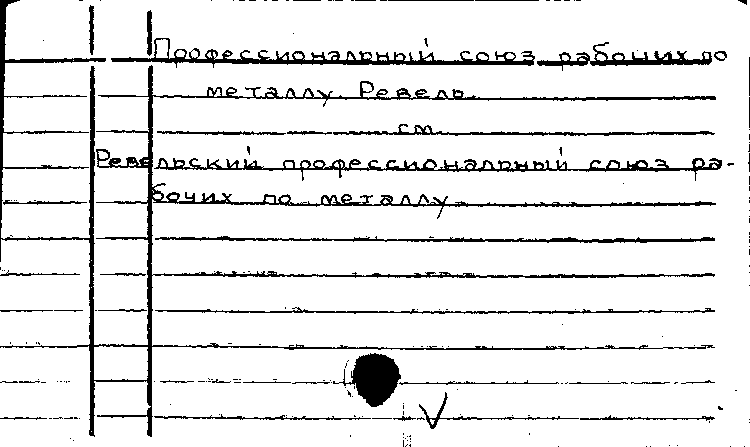 Профессиональный союз рабочих по
металлу. Ревель.
см.
Ревельский профессиональный союз ра-
бочих по металлу